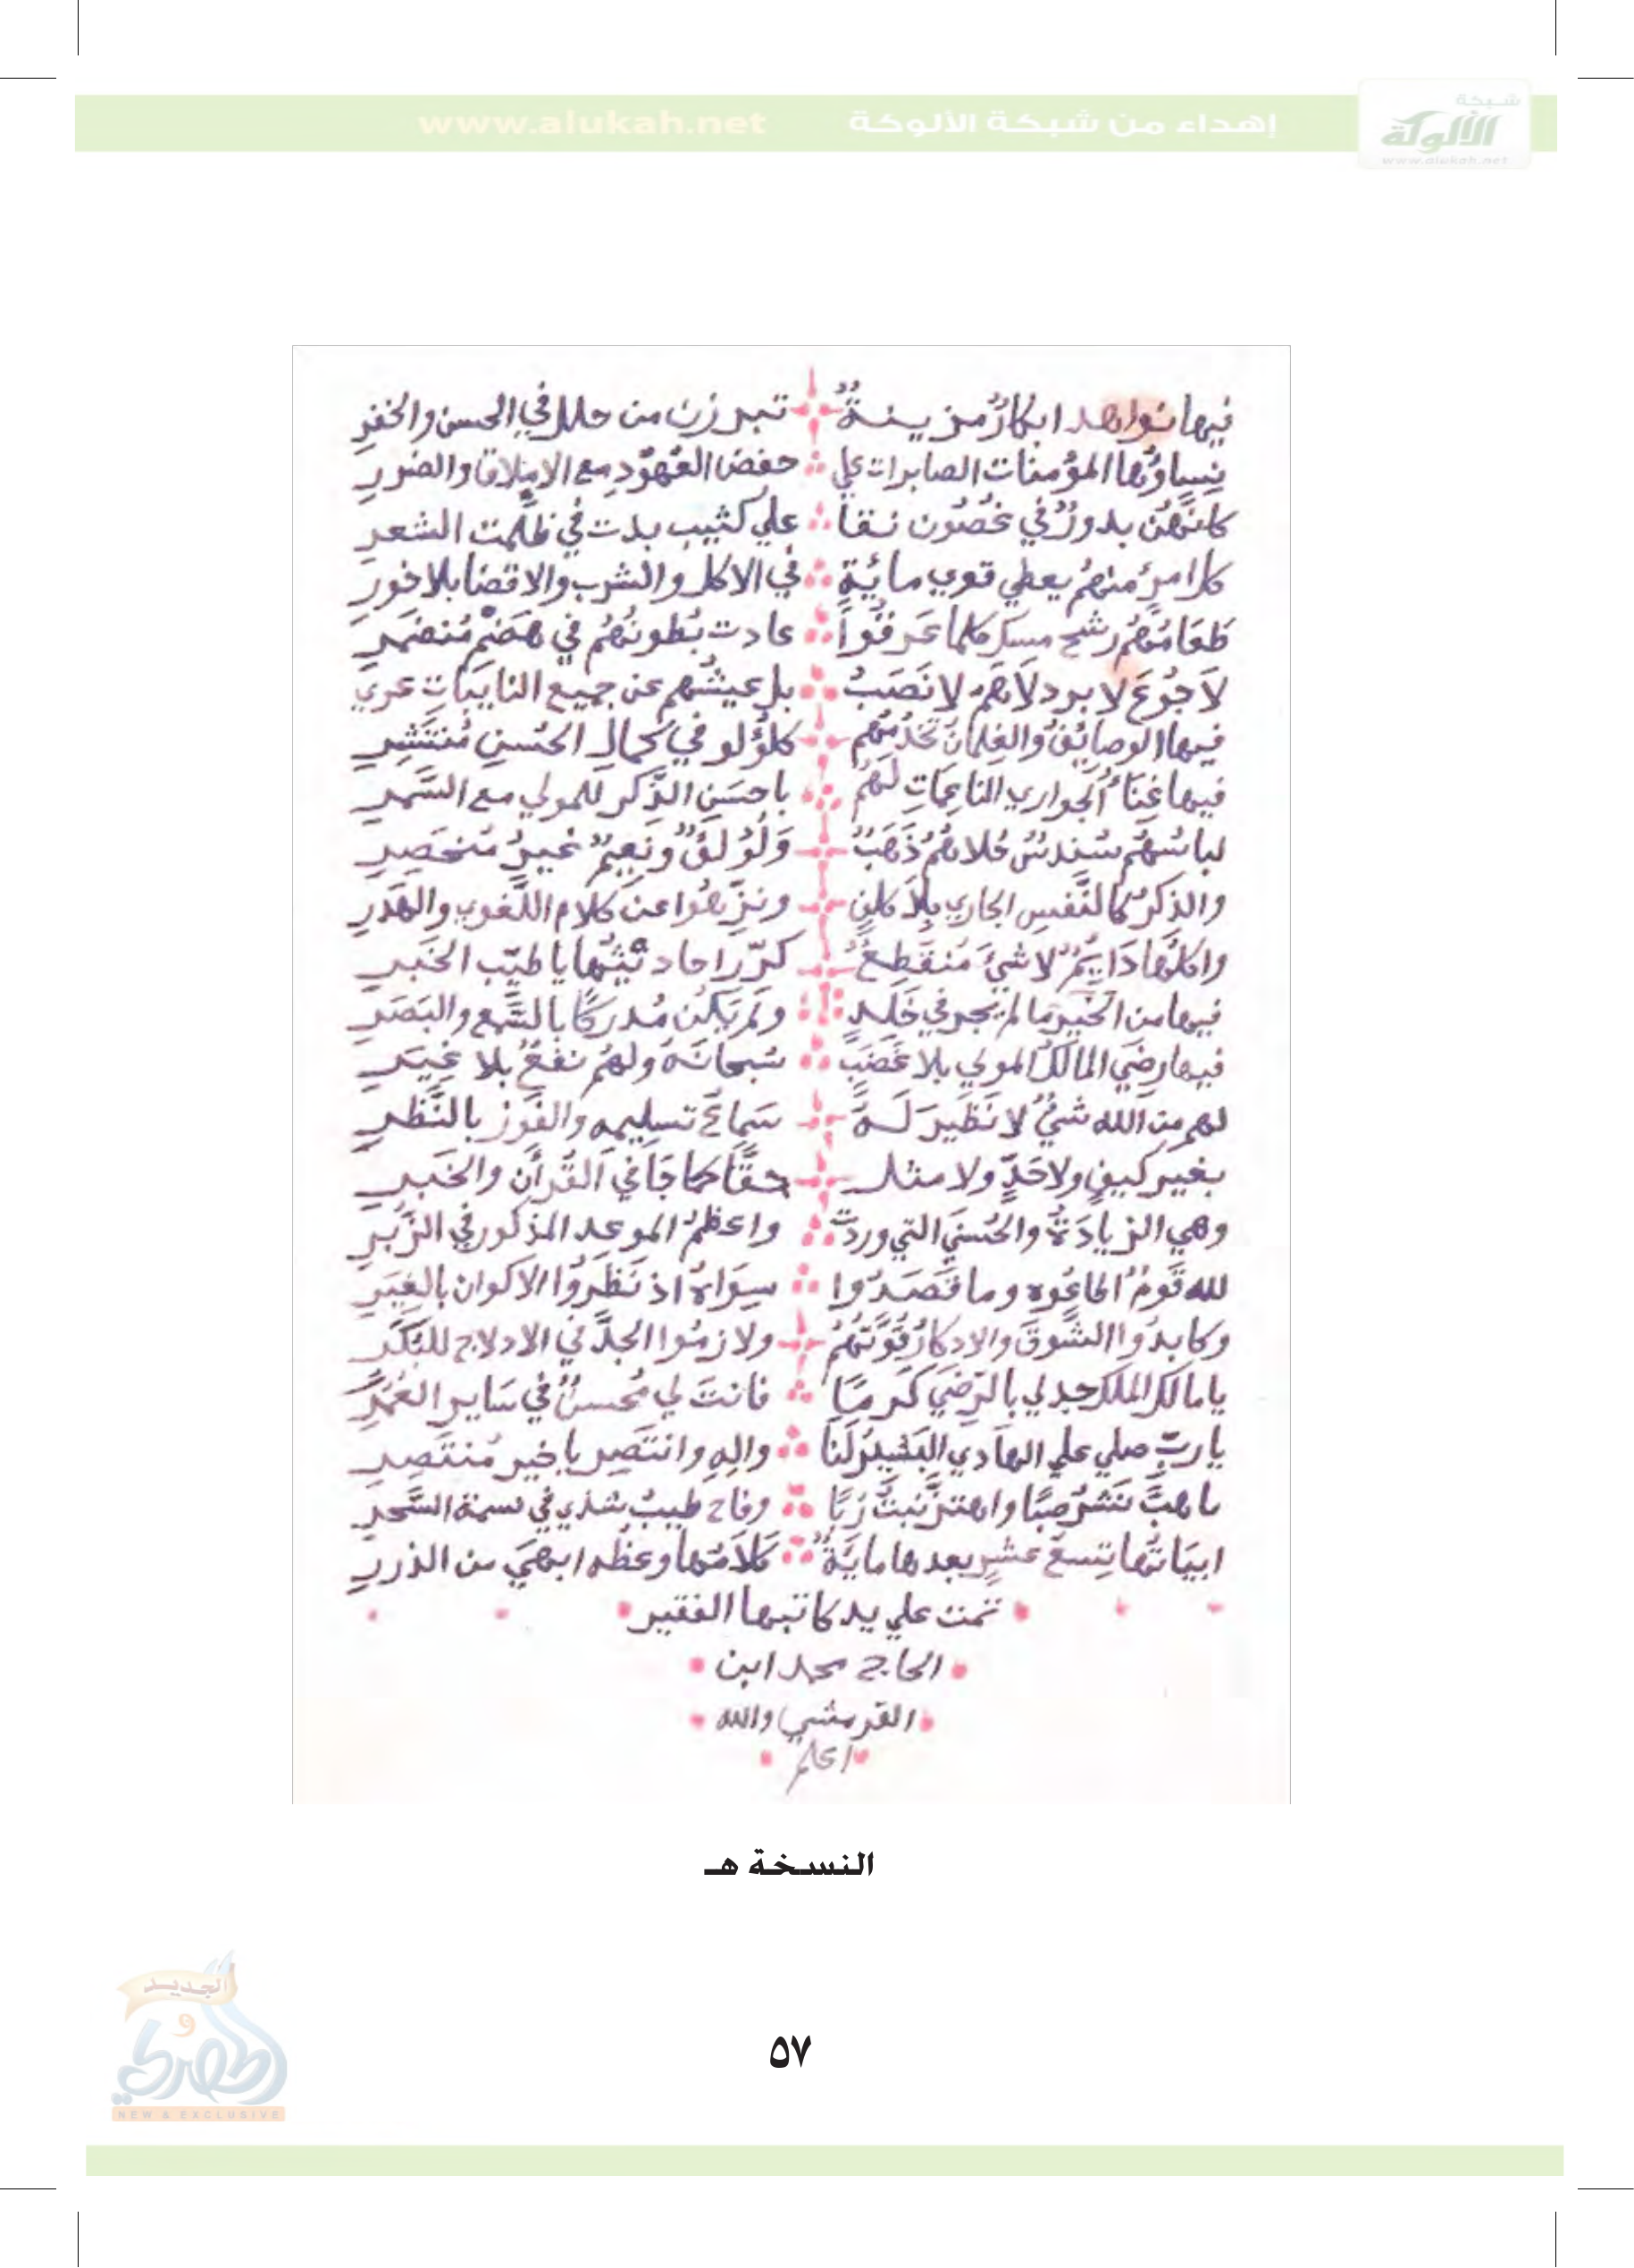 شبكة
الألوكة
www.alukah.net
إهداء من شبكة الألوكة www.alukah.net
فيها نواهد ابكارٌ مزينةٌ تبرزن من حلل في الحسن والخفرِ
نِساؤُها المؤمنات الصابرات علي حفض العُهُود مع الاملاق والضرر
كانهُن بدورٌ في غُصُون نقا علي كثيب بدت في ظلمت الشعر
كل امرئٍ منهم يعطي قوي مائةٍ في الاكل والشرب والاقضا بلا خور
طَعَامُهُم رشح مسك كلما عَرقُوا عادت بُطونُهُم في هَضْمِ مُنضمر
لاَ جُوعَ لا برد لاَ هَم لا نَصَبُ بل عيشُهم عن جميع النايبَات عري
فيها الوصائفُ والغِلمانُ تخدُمُهُم كلؤلو في كمال الحُسنِ مُنتَثِر
فيها غِنَاءُ الجواري الناعِمَاتِ لهُم باحسَنِ الذِّكرِ للمولي مع السَّمر
لباسُهُم سُندسٌ حُلاهُم ذَهَبٌ وَلُؤلُؤٌ ونَعِيمٌ غيرُ مُنحَصِر
والذِكرُ كالنَّفَسِ الجاري بِلاَ كلفٍ ونزِّهُوا عن كلام اللَّغوي والهَدَر
واكلُها دَايِمٌ لا شيءَ مُنقَطِعٌ كرّر احاديثها يا طيّب الخَبر
فيها من الخَير ما لم يجر في خَلَدٍ ولم يَكُن مُدرَكًا بالسَّمع والبَصَر
فيها رِضَي المالك المولي بلا غَضَبٍ سُبحانَهُ ولهُم نفعٌ بلا غِيَر
لهم مِن الله شيءٌ لا نَظِيرَ لَهُ سَماعُ تسليمه والفَوزُ بالنَّظر
بغير كيفٍ ولا حَدٍّ ولا مثل حقًّا كما جَا في القُرأن والخَبر
وهي الزيادَةُ والحُسنَي التي وردت واعظمُ الموعد المذكور في الزُّبر
لله قَومٌ اطاعُوه وما قَصَدُوا سِوَاهُ اذ نَظَرُوا الاكوان بالعِبَر
وكابدُوا الشَّوقَ والادكارُ قُوتهُمُ ولازمُوا الجدَّ في الادلاج للبُكَر
يا مالك الملك جد لي بالرّضَي كَرمًا فانتَ لي مُحسنٌ في سَاير العُمُر
يا ربّ صلي علي الهَادي البَشيرُ لَنَا والِهِ وانتَصِر يا خير مُنتَصِر
ما هبَّ نَشرُ صبًا واهتز نبتُ رُبًا وفاح طيبُ شذي في نسمة السَّحر
ابيَاتُها تِسعُ عشرٍ بعدها مايَةٌ كلاَمُها وعظُه ابهَي من الدرر
تمت علي يد كاتبها الفقير
الحاج محمد ابن
والله
اعلم
النسخة هـ
الجديد
و
NEW & EXCLUSIVE
٥٧